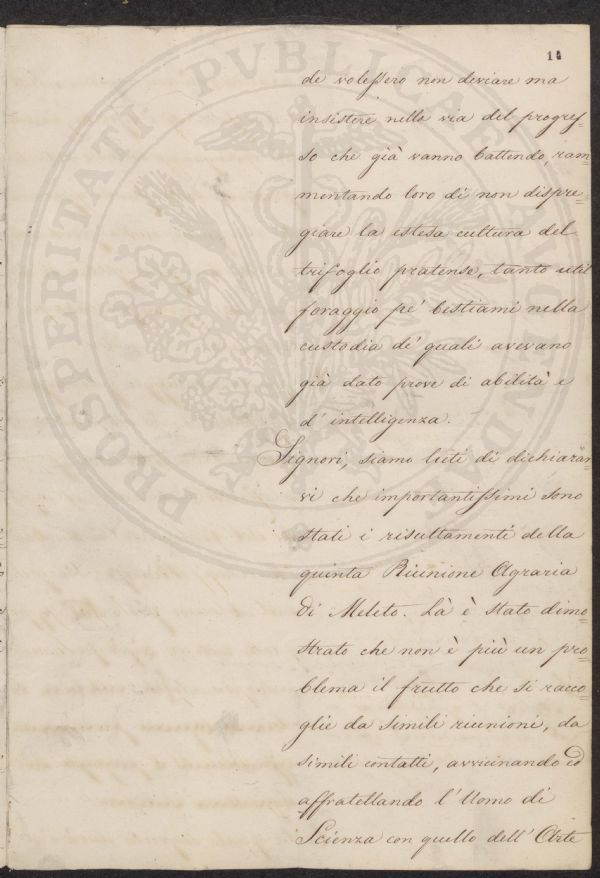 14
de volessero non deviare ma
insistere nella via del progres=
so che già vanno battendo, ram=
mentando loro di non dispre=
giare la estesa cultura del
trifoglio pratense, tanto util
foraggio pe' bestiami nella
custodia de' quali avevano
già dato prove di abilità e
d' intelligenza.
Signori, siamo lieti di dichiarar=
vi che importantissimi sono
stati i risultamenti della
quinta Riunione Agraria
di Meleto. Là è stato dimo=
strato che non è più un pro=
blema il frutto che si racco=
glie da simili riunioni, da
simili contatti, avvicinando ed
affratellando l' Uomo di
Scienza con quello dell' Arte
PROSPERITATI PVBLICAE AVGENDAE